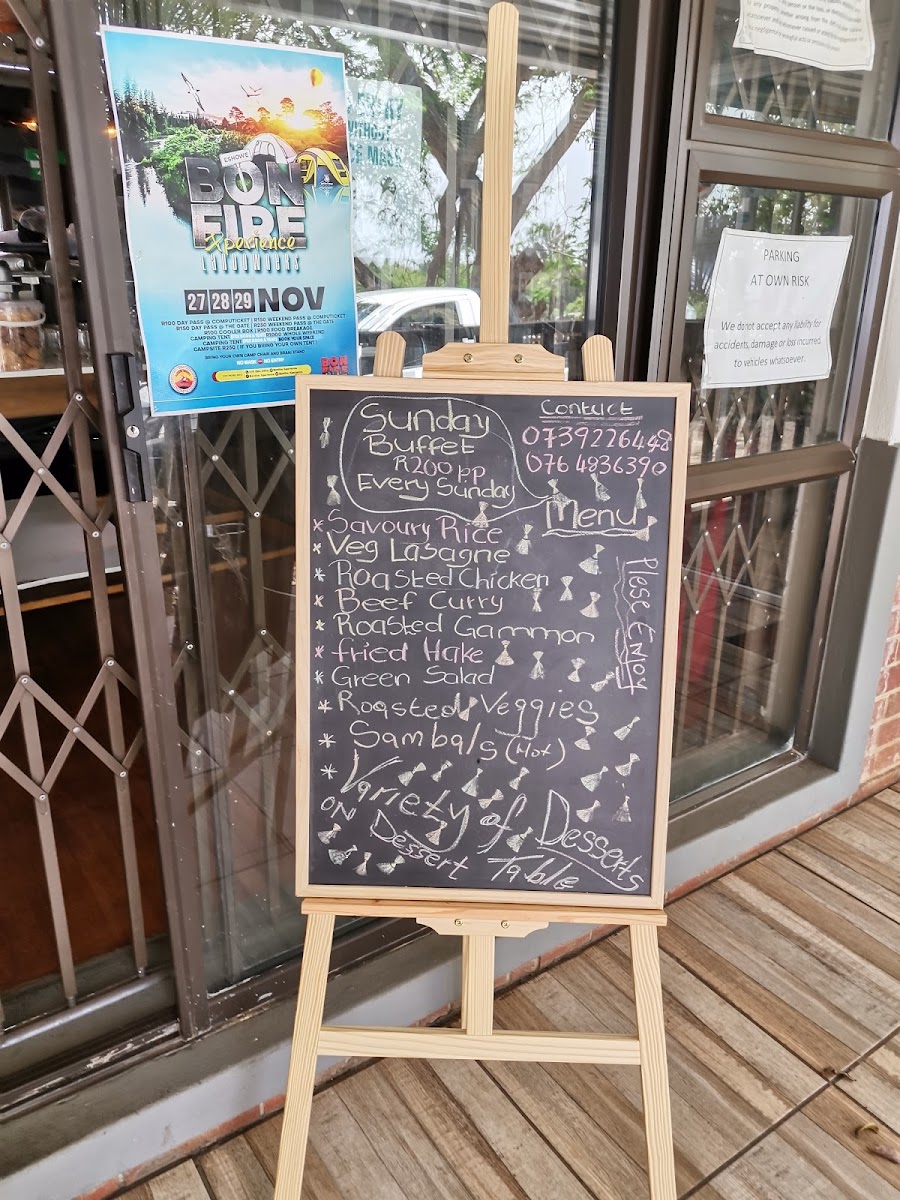 ESHOWE
BON
FIRE
Xperience
27 28 29 NOV
R100 DAY PASS @ COMPUTICKET | R150 WEEKEND PASS @ COMPUTICKET
R150 DAY PASS @ THE GATE | R250 WEEKEND PASS @ THE GATE
R100 COOLER BOX | R100 FOOD BREAKAGE
CAMPING TENT
WHOLE WEEKEND
CAMPSITE R250 | IF YOU BRING YOUR OWN TENT
BRING YOUR OWN CAMP CHAIR AND BRAAI STAND
NO MASK NO ENTRY
BON
WITHOUT
MASK
PARKING
AT OWN RISK
We do not accept any liability for
accidents, damage or loss incurred
to vehicles whatsoever.
Sunday
Buffet
R200 p.p
Every Sunday
Contact
0739226448
076 4836390
Menu
* Savoury Rice
* Veg Lasagne
* Roasted Chicken
* Beef Curry
* Roasted Gammon
* fried Hake
* Green Salad
* Roasted Veggies
* Sambals (Hot)
* Variety of Desserts
ON Dessert Table
Plese Enjoy